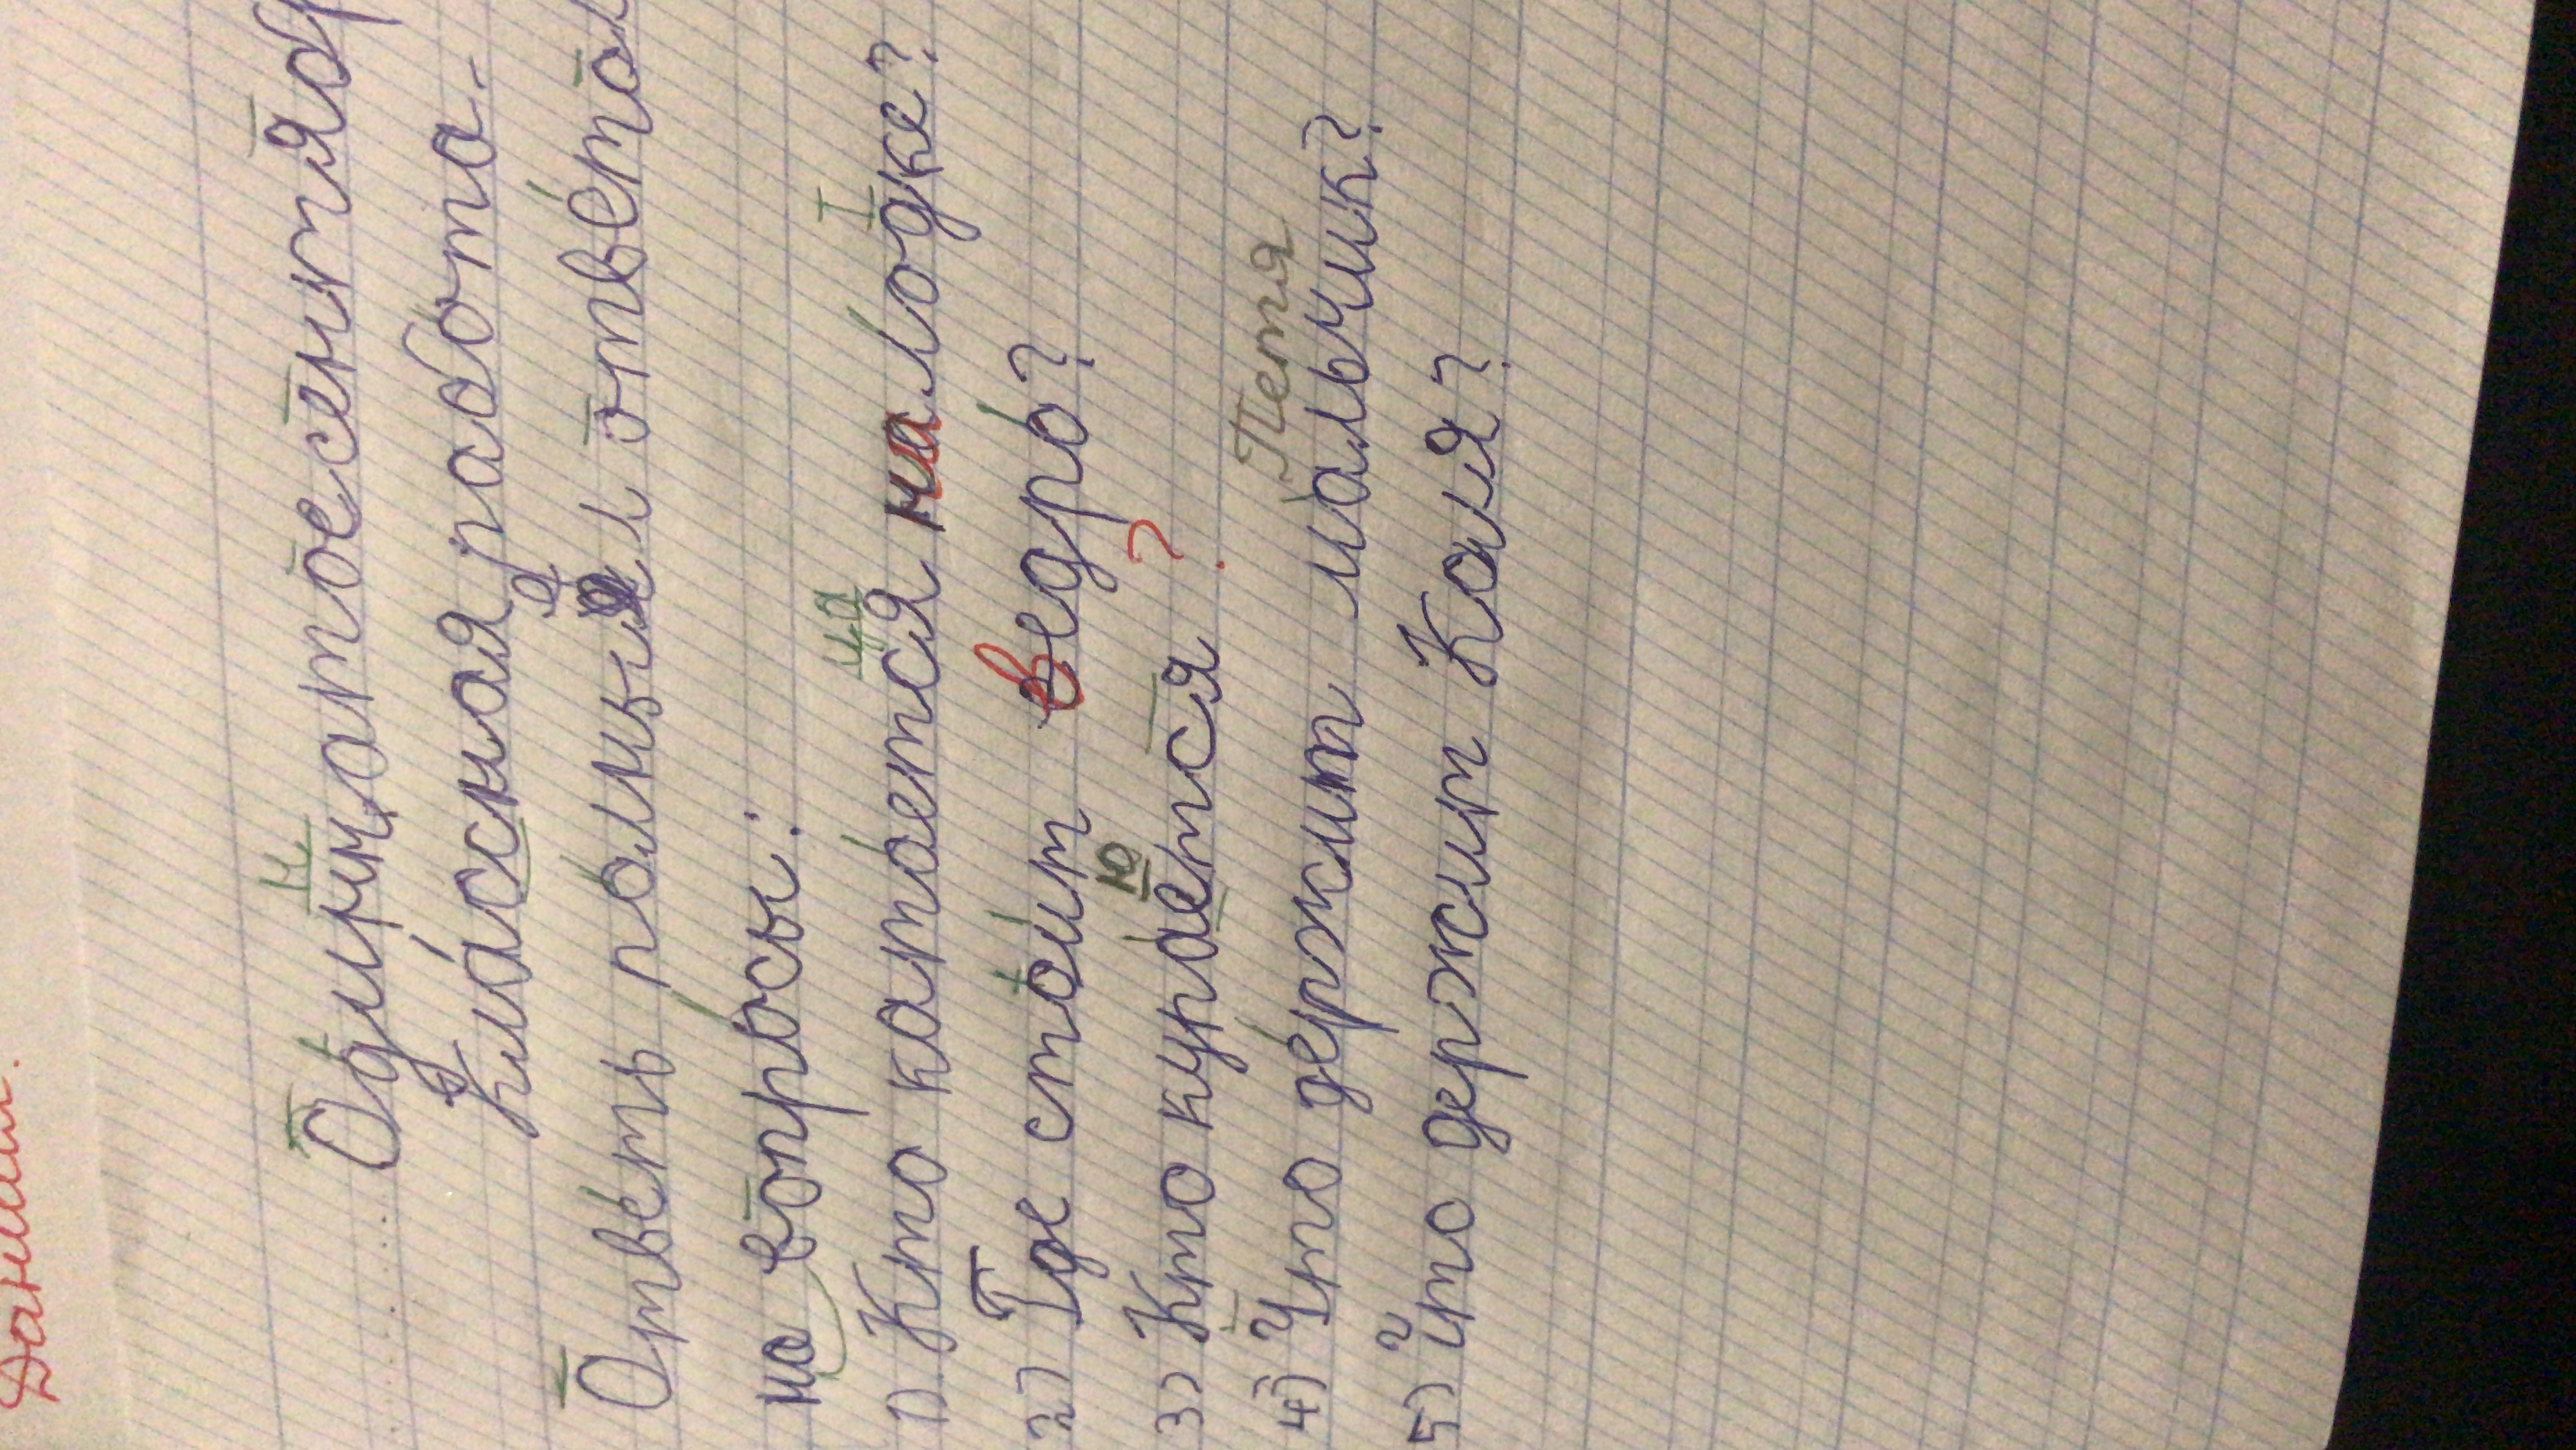 Даниил.
Одиннадцатое сентября
Классная работа.
Ответь полным ответом
на вопросы:
1) Кто катается на лодке?
2) Где стоит ведро?
3) Кто купается?
Петя
4) Что держит мальчик?
5) Что держит Коля?